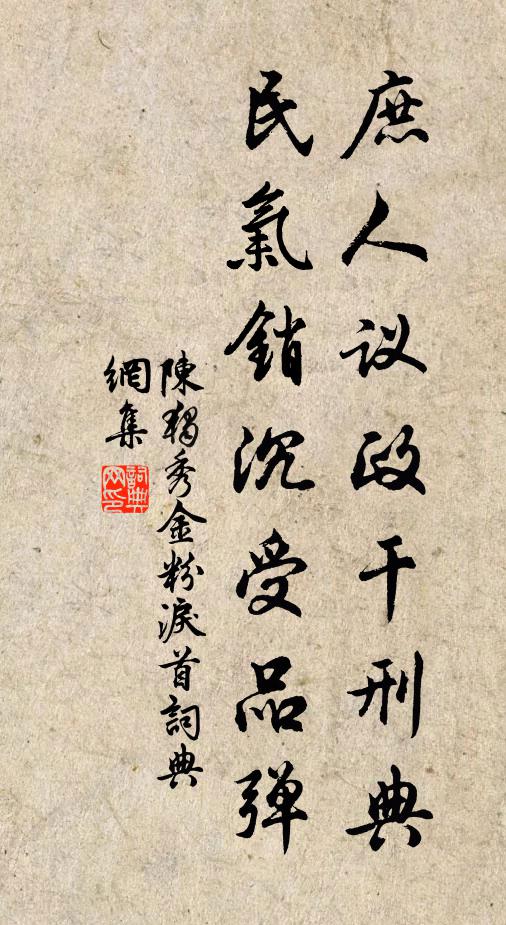 庶人议政干刑典
民氣銷沉受品彈
陳獨秀金粉淚首詞典
網集
詞典
网印